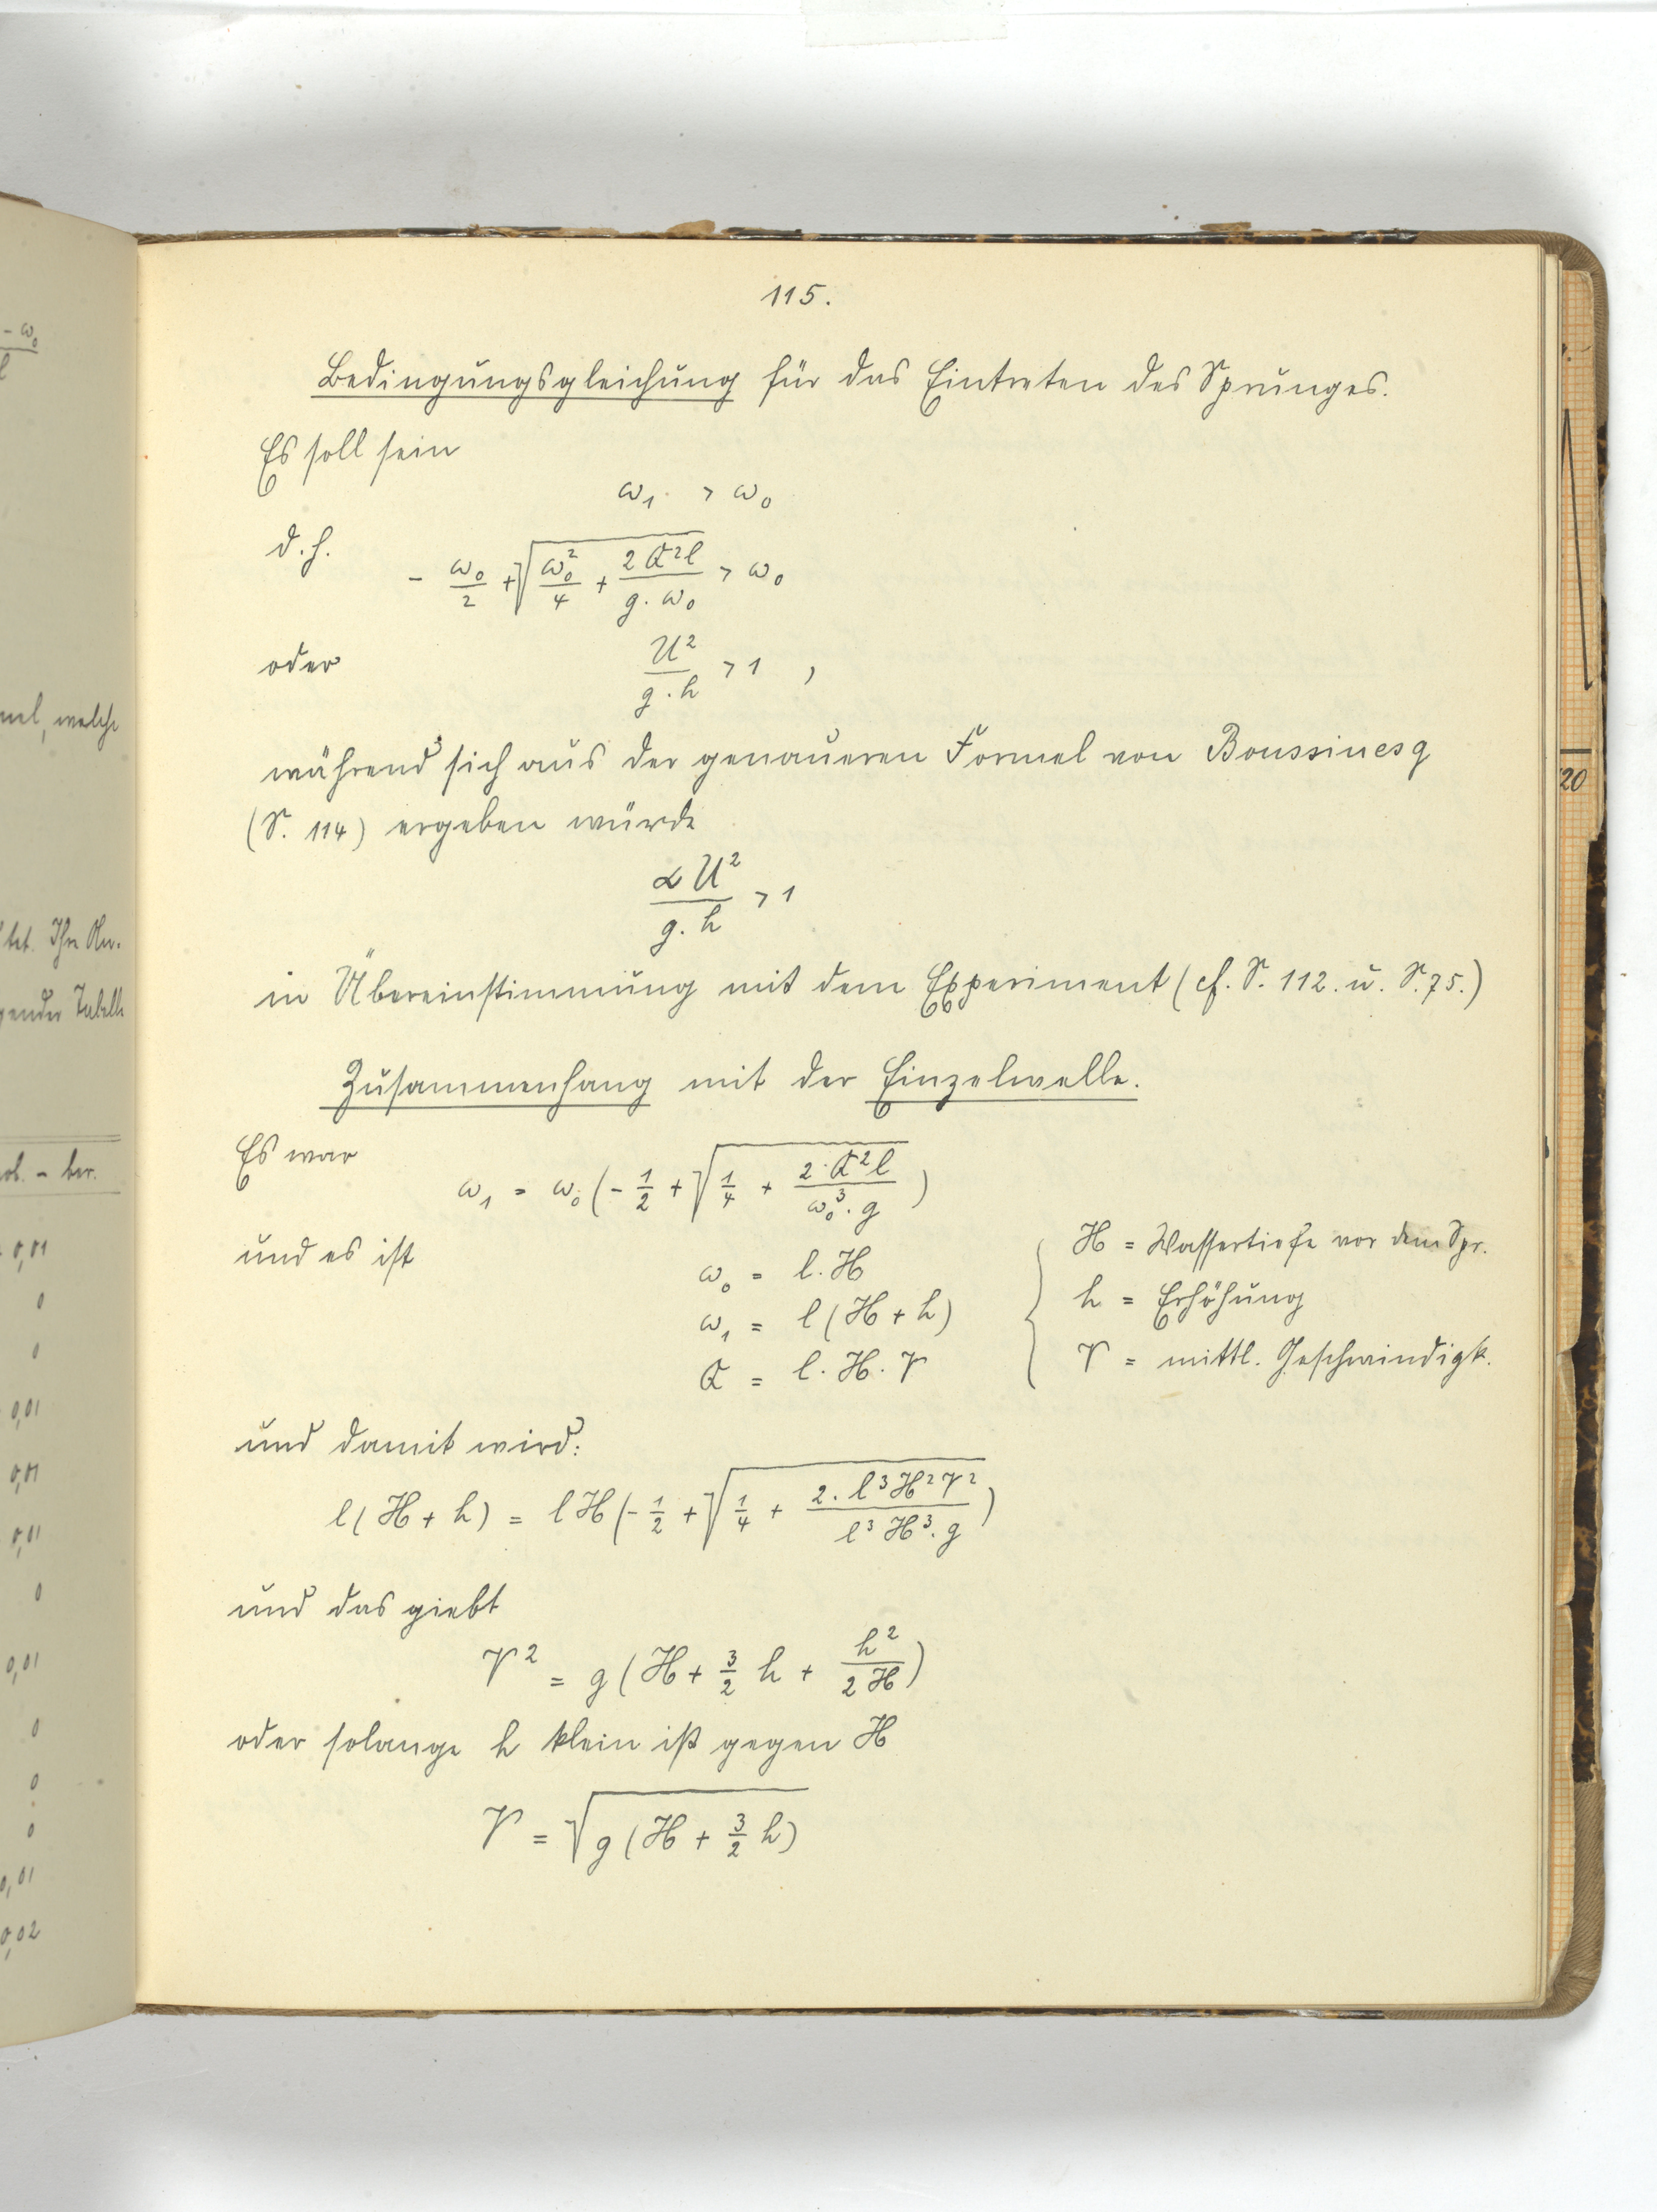 115.
Bedingungsgleichung für das Eintreten des Sprunges.
Es soll sein
ω₁ > ω₀
d.h. - ω₀/2 + √(ω₀²/4 + 2Q²l/(g·ω₀)) > ω₀
oder U²/(g·h) > 1 ,
während sich aus der genaueren Formel von Boussinesq
(S. 114) ergeben würde
αU²/(g·h) > 1
in Übereinstimmung mit dem Experiment (cf. S. 112. u. S. 75.)
Zusammenhang mit der Einzelwelle.
Es war ω₁ = ω₀(- 1/2 + √(1/4 + 2·Q²l/(ω₀³·g)))
und es ist
ω₀ = l.H
ω₁ = l(H + h)
Q = l.H.V
H = Wassertiefe vor dem Spr.
h = Erhöhung
V = mittl. Geschwindigk.
und damit wird:
l(H + h) = lH(- 1/2 + √(1/4 + 2.l³H²V²/(l³H³.g)))
und das giebt
V² = g(H + 3/2 h + h²/(2H))
oder solange h klein ist gegen H
V = √(g(H + 3/2 h))
- ω₀
l
welche
tet. Ihre
gender Tabelle
- ber.
0,01
0
0
0,01
0,01
0,01
0
0,01
0
0
0
0,01
0,02
20